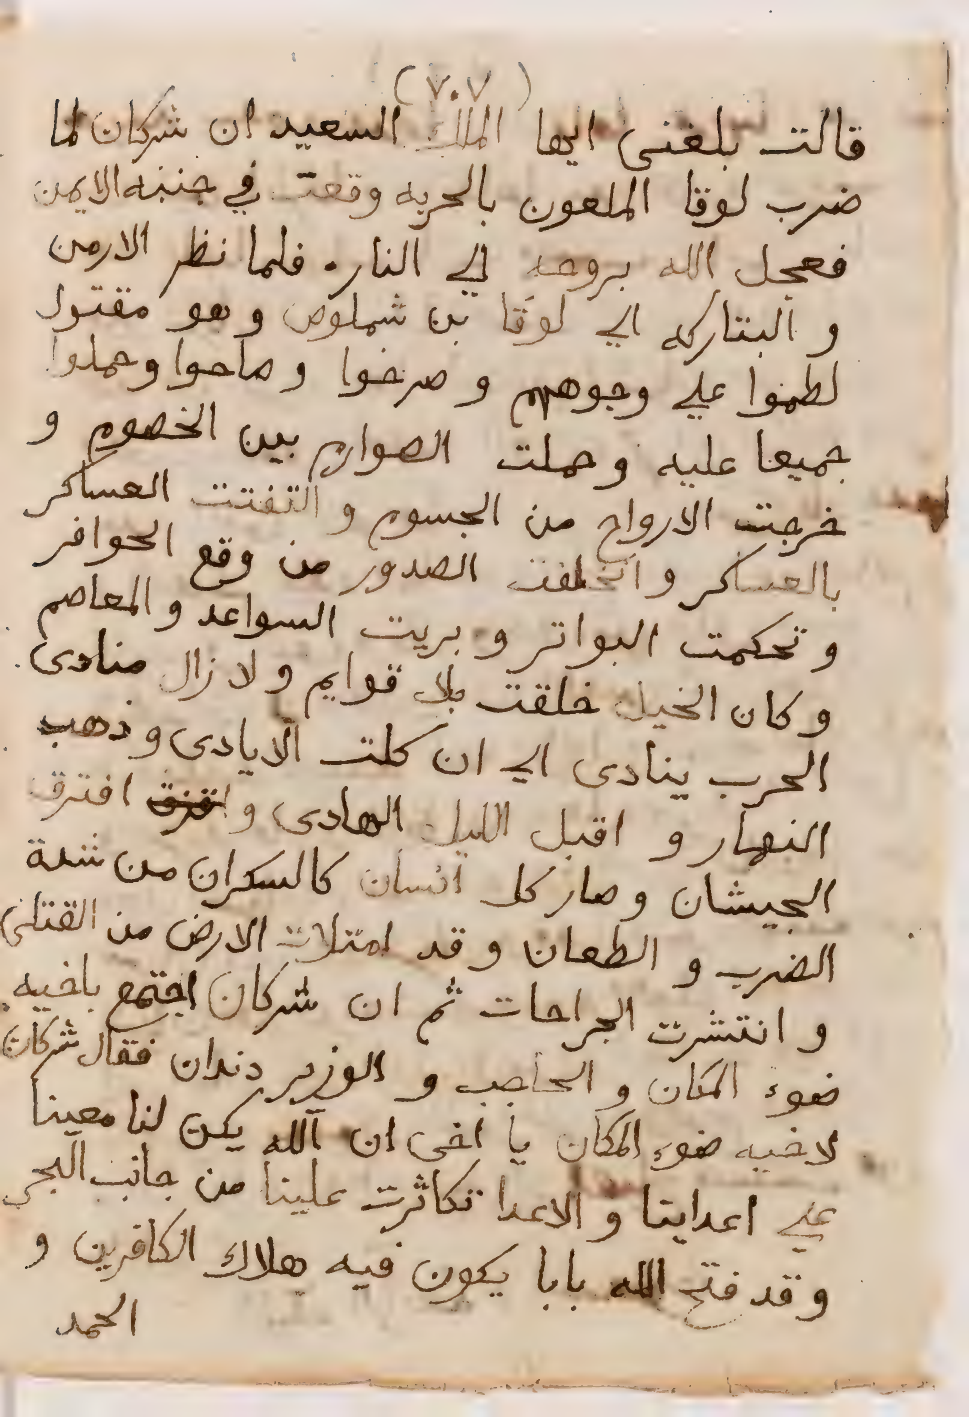 (٧٠٧)
قالت بلغنى ايها الملك السعيد ان شركان لما
ضرب لوقا الملعون بالحربه وقعت في جنبه الايمن
فعجل الله بروحه الي النار. فلما نظر الارمن
و البتاركه الي لوقا بن شملوص و هو مقتول
لطموا علي وجوههم و صرخوا و صاحوا وحملوا
جميعا عليه و حملت الصوارم بين الخصوم و
خرجت الارواح من الجسوم و التفتت العساكر
بالعساكر و الصدور من وقع الحوافر
و تحكمت البواتر و بريت السواعد و المعاصم
و كان الخيل خلقت بلا قوايم و لا زال منادى
الحرب ينادى الي ان كلت الايادى و ذهب
النهار و اقبل الليل الهادى و افترق
الجيشان و صار كل انسان كالسكران من شدة
الضرب و الطعان و قد امتلات الارض من القتلى
و انتشرت الجراحات ثم ان شركان اجتمع باخيه
ضوء المكان و الحاجب و الوزير دندان فقال شركان
لاخيه ضوء المكان يا اخى ان الله يكن لنا معينا
علي اعداينا و الاعدا تكاثرت علينا من جانب البحر
و قد فتح الله بابا يكون فيه هلاك الكافرين و
الحمد